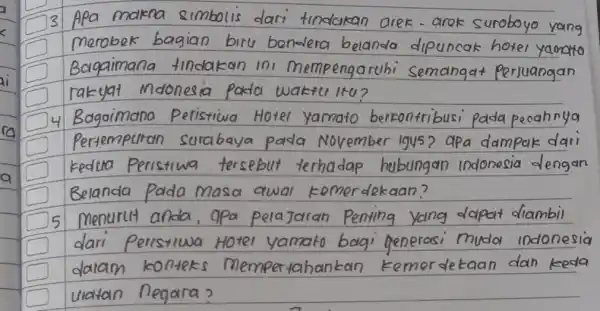 3 Apa makna simbolis dari tindakan arek - arek suroboyo yang
merobek bagian biru bendera belanda dipuncak hotel yamato
Bagaimana tindakan ini mempengaruhi semangat Perjuangan
rakyat Indonesia pada waktu itu?
4 Bagaimana Peristiwa Hotel yamato berkontribusi pada pecahnya
Pertempuran surabaya pada November 1945? apa dampak dari
kedua Peristiwa tersebut terhadap hubungan indonesia dengan
Belanda Pada masa awal kemerdekaan?
5 menurut anda, apa pelajaran Penting yang dapat diambil
dari Peristiwa Hotel yamato bagi generasi muda indonesia
dalam konteks mempertahankan kemerdekaan dan keda
ulatan negara?